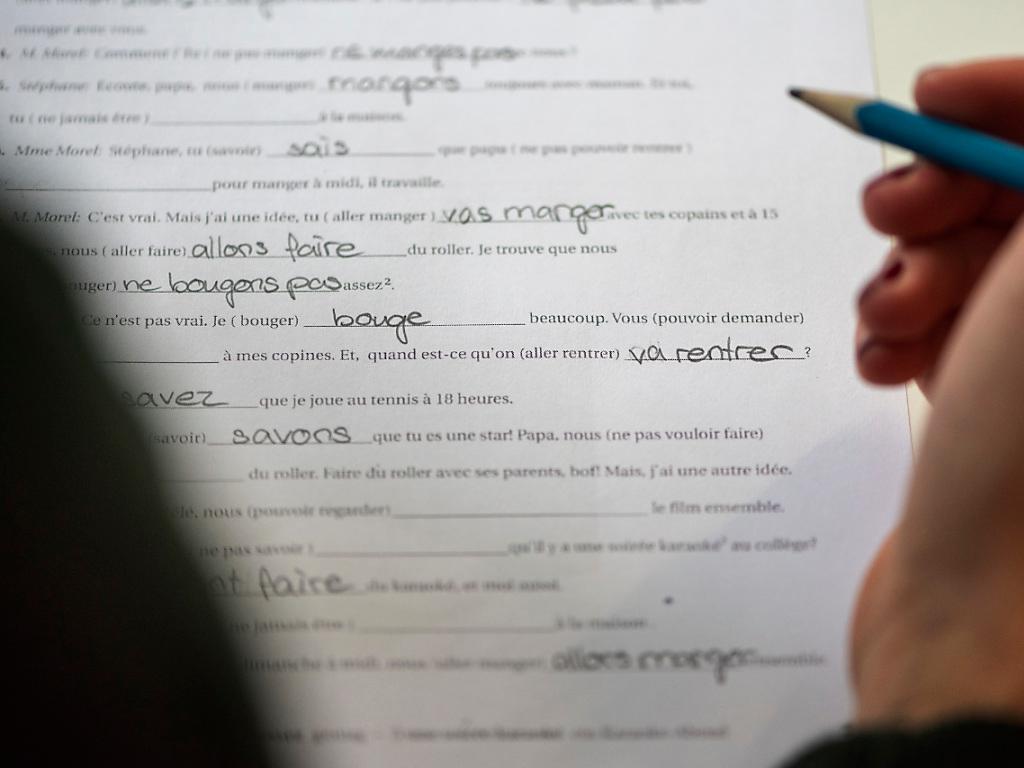 manger avec vous.
M. Morel: Comment? Tu ( ne pas manger) ne manges pas avec nous?
Stéphane: Ecoute, papa, nous ( manger) mangons toujours avec maman. Et toi,
tu ( ne jamais être ) à la maison.
Mme Morel: Stéphane, tu (savoir) sais que papa ( ne pas pouvoir rentrer )
pour manger à midi, il travaille.
M. Morel: C'est vrai. Mais j'ai une idée, tu ( aller manger ) vas manger avec tes copains et à 15
nous ( aller faire) allons faire du roller. Je trouve que nous
ne bougens pas assez².
Ce n'est pas vrai. Je ( bouger) bouge beaucoup. Vous (pouvoir demander)
à mes copines. Et, quand est-ce qu'on (aller rentrer) va rentrer ?
savez que je joue au tennis à 18 heures.
(savoir) savons que tu es une star! Papa, nous (ne pas vouloir faire)
du roller. Faire du roller avec ses parents, bof! Mais, j'ai une autre idée.
nous (pouvoir regarder) le film ensemble.
ne pas savoir ) qu'il y a une soirée karaoké³ au collège?
faire du karaoké, et moi aussi.
ne jamais être ( à la maison.
dimanche à midi, nous (aller manger) allons manger ensemble.